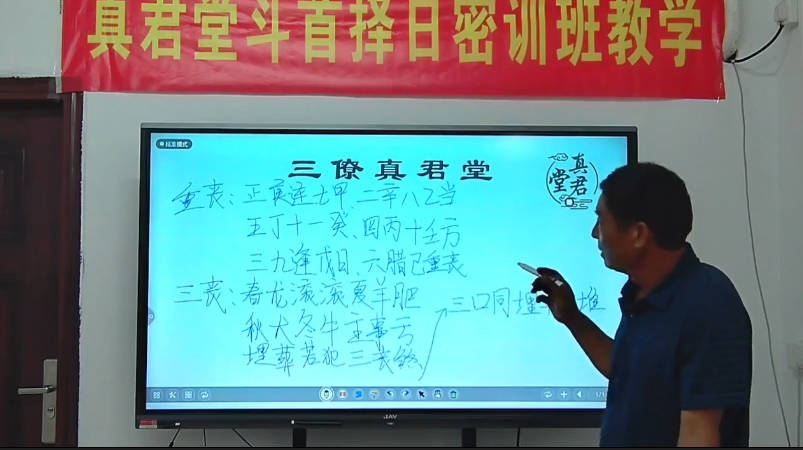 真君堂斗首择日密训班教学
标准模式
三僚真君堂
真君堂
重丧:正庚连七甲、二辛八乙当
五丁十一癸、四丙十壬方
三九逢戊日、六腊己重丧
三丧:春龙滚滚夏羊肥
秋犬冬牛主事亏
埋葬若犯三丧煞
三口同埋 堆
JAV